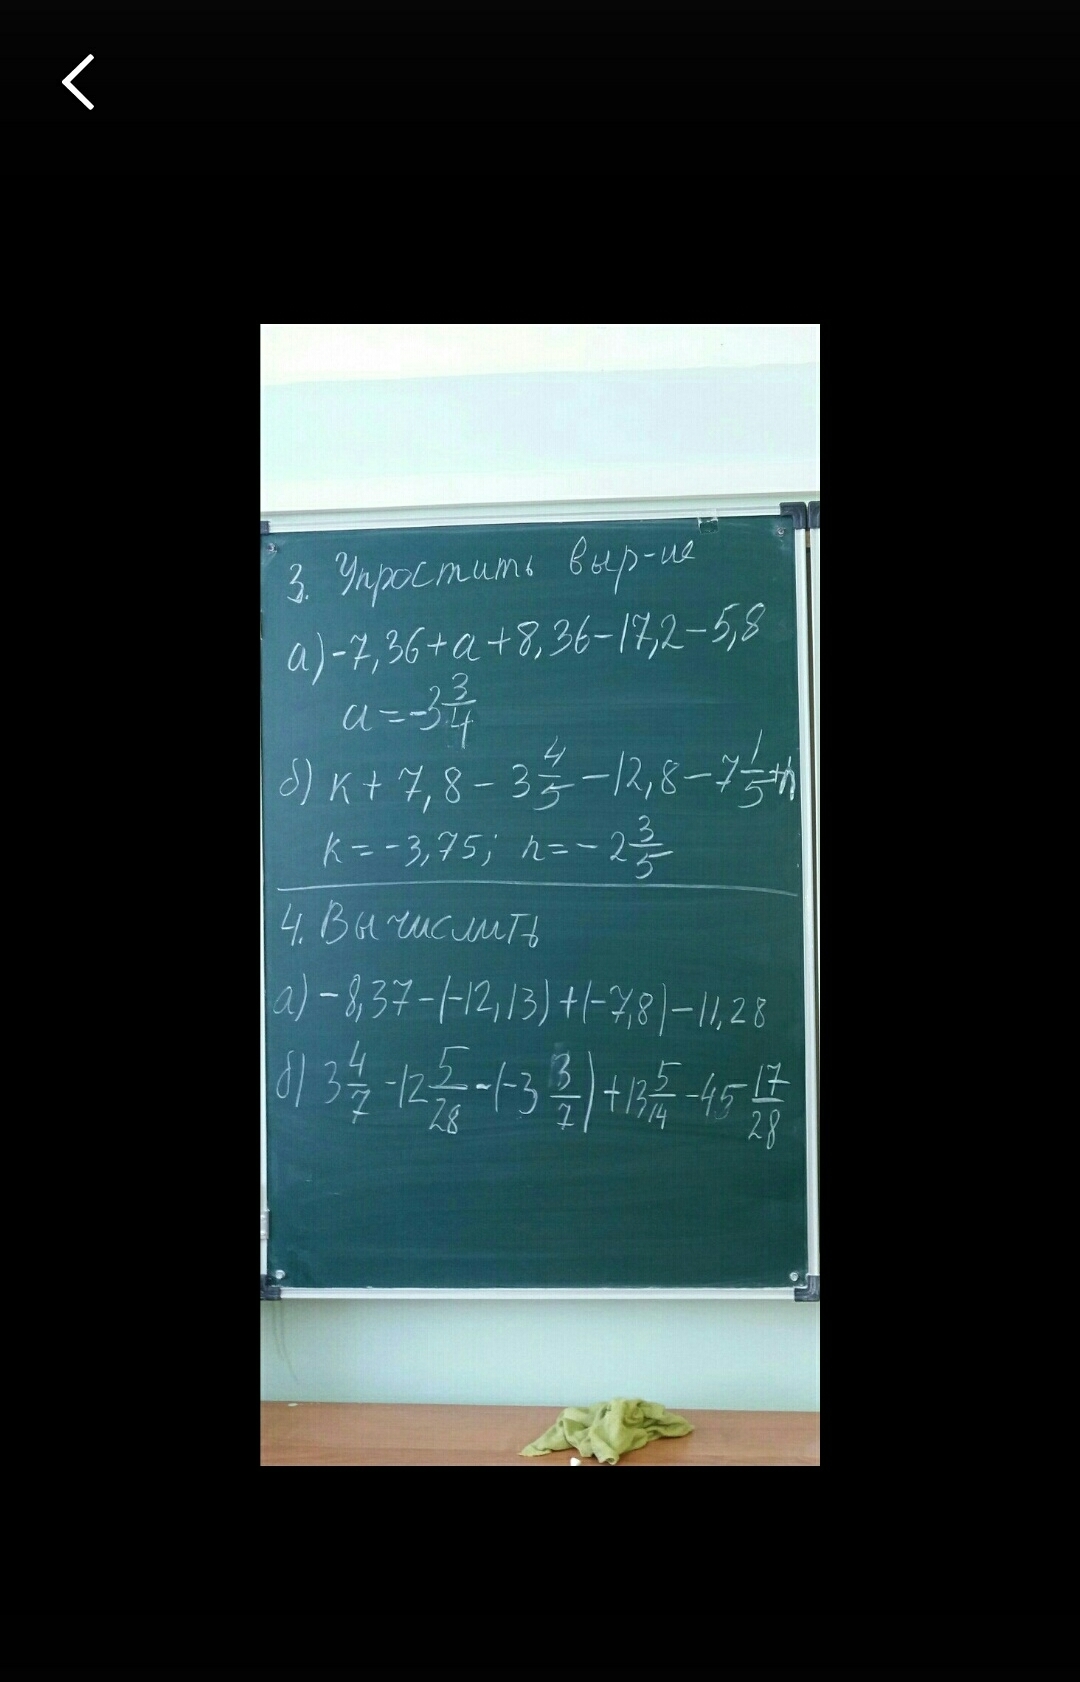 3. Упростить выр-ие
а) -7,36+a+8,36-17,2-5,8
a=-3 3/4
б) к+7,8-3 4/5-12,8-7 1/5+n
к=-3,75; n=-2 3/5
4. Вычислить
а) -8,37-(-12,13)+(-7,8)-11,28
б) 3 4/7-12 5/28-(-3 3/7)+13 5/14-45 17/28